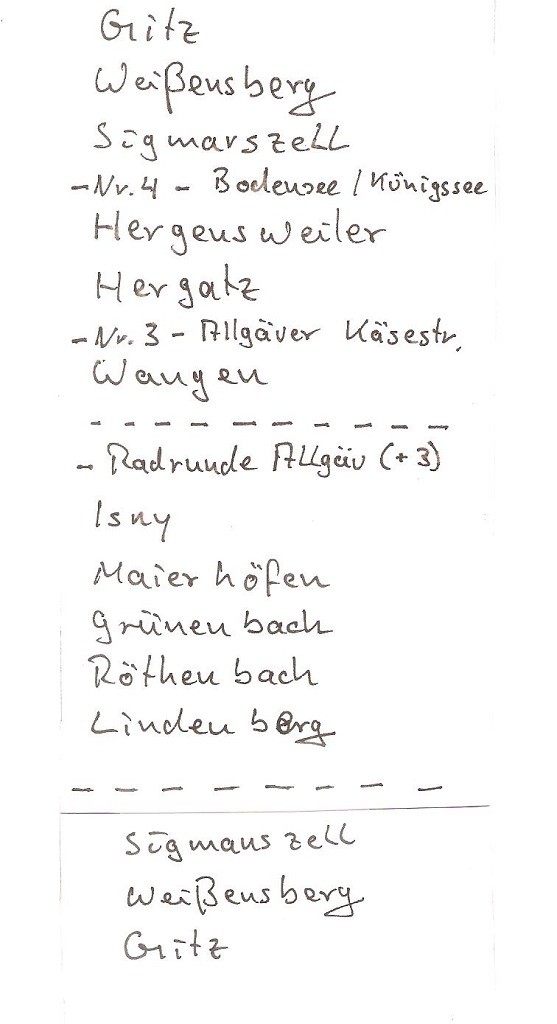 Gritz
Weißensberg
Sigmarszell
- Nr. 4 - Bodensee / Königssee
Hergensweiler
Hergatz
- Nr. 3 - Allgäuer Käsestr.
Wangen
- - - - - - - - -
- Radrunde Allgäu (+3)
Isny
Maierhöfen
Grünenbach
Röthenbach
Lindenberg
- - - - - - - -
Sigmarszell
Weißensberg
Gritz